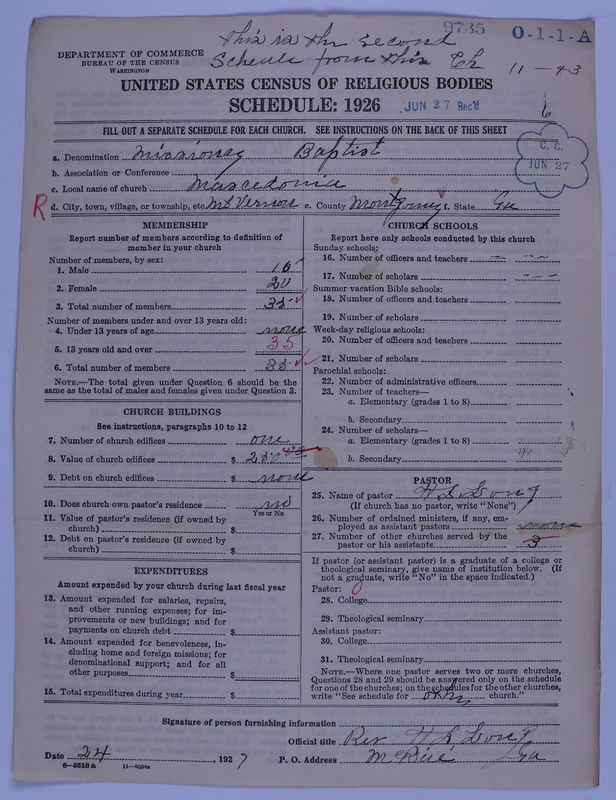 9735 O-1-1-A
this is the second
Schedule from this Ch 11-43
DEPARTMENT OF COMMERCE
BUREAU OF THE CENSUS
WASHINGTON
UNITED STATES CENSUS OF RELIGIOUS BODIES
SCHEDULE: 1926 JUN 27 Rec'd
6
FILL OUT A SEPARATE SCHEDULE FOR EACH CHURCH. SEE INSTRUCTIONS ON THE BACK OF THIS SHEET
C. C.
JUN 27
a. Denomination Missionary Baptist
b. Association or Conference
c. Local name of church Mascedonia
R d. City, town, village, or township, etc. Mt Vernon e. County Montgomery f. State Ga
MEMBERSHIP
Report number of members according to definition of member in your church
Number of members, by sex:
1. Male 15
2. Female 20
3. Total number of members 35
Number of members under and over 13 years old:
4. Under 13 years of age none
5. 13 years old and over 35
6. Total number of members 35
NOTE.—The total given under Question 6 should be the same as the total of males and females given under Question 3.
CHURCH BUILDINGS
See instructions, paragraphs 10 to 12
7. Number of church edifices one
8. Value of church edifices $ 250
9. Debt on church edifices $ none
10. Does church own pastor's residence? no
Yes or No
11. Value of pastor's residence (if owned by church) $
12. Debt on pastor's residence (if owned by church) $
EXPENDITURES
Amount expended by your church during last fiscal year
13. Amount expended for salaries, repairs, and other running expenses; for improvements or new buildings; and for payments on church debt $
14. Amount expended for benevolences, including home and foreign missions; for denominational support; and for all other purposes $
15. Total expenditures during year $
CHURCH SCHOOLS
Report here only schools conducted by this church
Sunday schools:
16. Number of officers and teachers
17. Number of scholars
Summer vacation Bible schools:
18. Number of officers and teachers
19. Number of scholars
Week-day religious schools:
20. Number of officers and teachers
21. Number of scholars
Parochial schools:
22. Number of administrative officers
23. Number of teachers—
a. Elementary (grades 1 to 8)
b. Secondary
24. Number of scholars—
a. Elementary (grades 1 to 8)
b. Secondary
PASTOR
25. Name of pastor
(If church has no pastor, write "None")
26. Number of ordained ministers, if any, employed as assistant pastors none
27. Number of other churches served by the pastor or his assistants 3
If pastor (or assistant pastor) is a graduate of a college or theological seminary, give name of institution below. (If not a graduate, write "No" in the space indicated.)
Pastor: 0
28. College
29. Theological seminary
Assistant pastor:
30. College
31. Theological seminary
NOTE.—Where one pastor serves two or more churches, Questions 28 and 29 should be answered only on the schedule for one of the churches; on the schedules for the other churches, write "See schedule for church."
Signature of person furnishing information
Official title Rev
Date 24, 1927 P. O. Address Ga
8-5518a 11-9054a